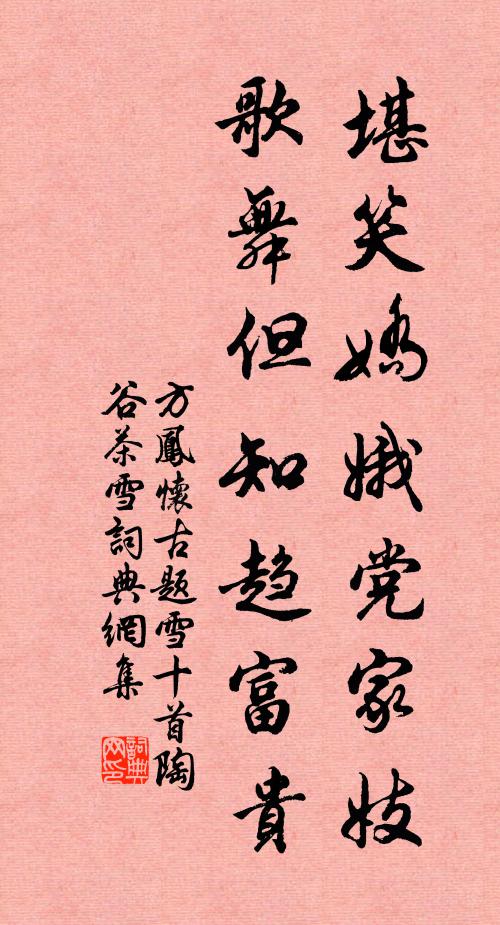 堪笑嬌娥党家妓
歌舞但知趨富貴
方鳳懷古題雪十首陶
谷茶雪詞典網集
詞典
网印